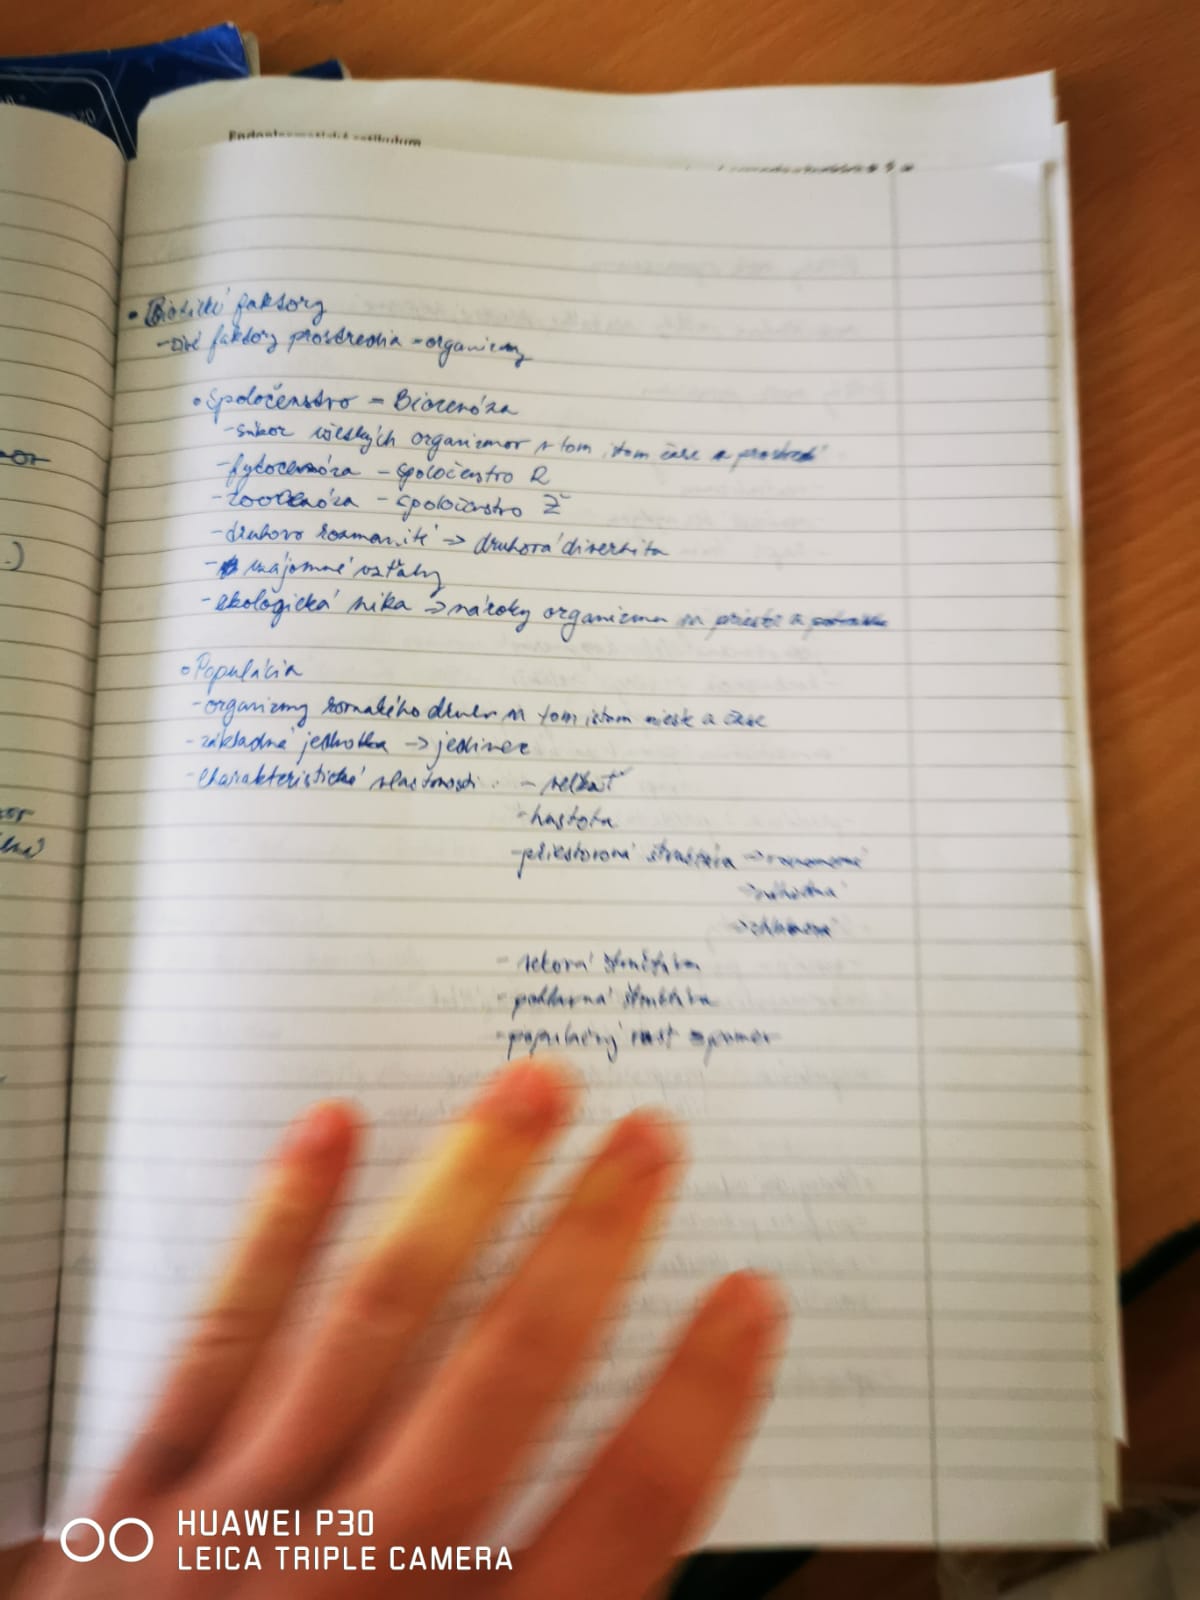 Endoplazmatické retikulum
• Biotické faktory
- živé faktory prostredia = organizmy
• Spoločenstvo = Biocenóza
- súbor všetkých organizmov v tom istom čase a prostredí
- fytocenóza - spoločenstvo R
- zoocenóza - spoločenstvo Ž
- druhovo rozmanité -> druhová diverzita
- vzájomné vzťahy
- ekologická nika -> nároky organizmu na priestor a potravu
• Populácia
- organizmy rovnakého druhu v tom istom mieste a čase
- základná jednotka -> jedinec
- charakteristické vlastnosti: - veľkosť
- hustota
- priestorová štruktúra -> rovnomerná
-> náhodná
- veková štruktúra
- pohlavná štruktúra
- populačný rast
HUAWEI P30
LEICA TRIPLE CAMERA